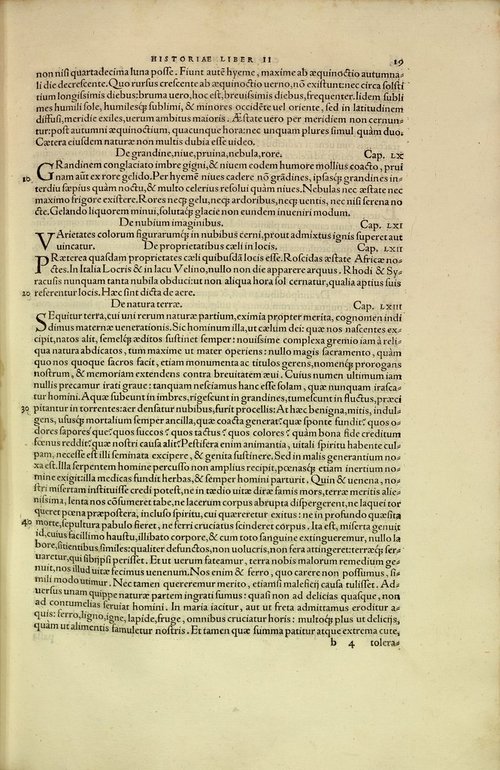 HISTORIAE LIBER II 19
non nisi quartadecima luna posse. Fiunt autē hyeme, maxime ab æquinoctio autumna-
li die decrescente. Quo rursus crescente ab æquinoctio uerno, nō existunt: nec circa solsti
tium longissimis diebus: bruma uero, hoc est, breuissimis diebus, frequenter. Iidem subli
mes humili sole, humilesq; sublimi, & minores occidēte uel oriente, sed in latitudinem
diffusi, meridie exiles, uerum ambitus maioris. Æstate uero per meridiem non cernun-
tur: post autumni æquinoctium, quacunque hora: nec unquam plures simul quàm duo.
Cætera eiusdem naturæ non multis dubia esse uideo.
De grandine, niue, pruina, nebula, rore. Cap. LX
GRandinem conglaciato imbre gigni, & niuem eodem humore mollius coacto, prui
10 nam aūt ex rore gelido. Per hyemē niues cadere nō grādines, ipsasq; grandines in-
terdiu sæpius quàm noctu, & multo celerius resolui quàm niues. Nebulas nec æstate nec
maximo frigore existere. Rores neq; gelu, neq; ardoribus, neq; uentis, nec nisi serena no
cte. Gelando liquorem minui, solutaq; glacie non eundem inueniri modum.
De nubium imaginibus. Cap. LXI
VArietates colorum figurarumq; in nubibus cerni, prout admixtus ignis superet aut
uincatur. De proprietatibus cæli in locis. Cap. LXII
PRæterea quasdam proprietates cæli quibusdā locis esse. Roscidas æstate Africæ no-
ctes. In Italia Locris & in lacu Velino, nullo non die apparere arquus. Rhodi & Sy-
racusis nunquam tanta nubila obduci: ut non aliqua hora sol cernatur, qualia aptius suis
20 referentur locis. Hæc sint dicta de aere.
De natura terræ. Cap. LXIII
SEquitur terra, cui uni rerum naturæ partium, eximia propter merita, cognomen indi
dimus maternæ uenerationis. Sic hominum illa, ut cælum dei: quæ nos nascentes ex-
cipit, natos alit, semelq; æditos sustinet semper: nouissime complexa gremio iam à reli-
qua natura abdicatos, tum maxime ut mater operiens: nullo magis sacramento, quàm
quo nos quoque sacros facit, etiam monumenta ac titulos gerens, nomenq; prorogans
nostrum, & memoriam extendens contra breuitatem æui. Cuius numen ultimum iam
nullis precamur irati graue: tanquam nesciamus hanc esse solam, quæ nunquam irasca-
tur homini. Aquæ subeunt in imbres, rigescunt in grandines, tumescunt in fluctus, præci
30 pitantur in torrentes: aer densatur nubibus, furit procellis: At hæc benigna, mitis, indul-
gens, ususq; mortalium semper ancilla, quæ coacta generat: quæ sponte fundit: quos o-
dores sapores'que: quos succos: quos tactus: quos colores: quàm bona fide creditum
fœnus reddit: quæ nostri causa alit: Pestifera enim animantia, uitali spiritu habente cul-
pam, necesse est illi seminata excipere, & genita sustinere. Sed in malis generantium no-
xa est. Illa serpentem homine percusso non amplius recipit, pœnasq; etiam inertium no-
mine exigit: illa medicas fundit herbas, & semper homini parturit. Quin & uenena, no-
stri misertam instituisse credi potest, ne in tædio uitæ diræ famis mors, terræ meritis alie-
nissima, lenta nos cōsumeret tabe, ne lacerum corpus abrupta dispergerent, ne laquei tor
queret pœna præpostera, incluso spiritu, cui quæreretur exitus: ne in profundo quæsita
40 morte, sepultura pabulo fieret, ne ferri cruciatus scinderet corpus. Ita est, miserta genuit
id, cuius facillimo haustu, illibato corpore, & cum toto sanguine extingueremur, nullo la
bore, sitientibus similes: qualiter defunctos, non uolucris, non fera attingeret: terræq; ser-
uaretur, qui sibijpsi perisset. Et ut uerum fateamur, terra nobis malorum remedium ge-
nuit, nos illud uitæ fecimus uenenum. Nos enim & ferro, quo carere non possumus, si-
mili modo utimur. Nec tamen quereremur merito, etiamsi maleficij causa tulisset. Ad-
uersus unam quippe naturæ partem ingrati sumus: quasi non ad delicias quasque, non
ad contumelias seruiat homini. In maria iacitur, aut ut freta admittamus eroditur a-
quis: ferro, ligno, igne, lapide, fruge, omnibus cruciatur horis: multoq; plus ut delicijs,
quàm ut alimentis famuletur nostris. Et tamen quæ summa patitur atque extrema cute,
b 4 tolera-